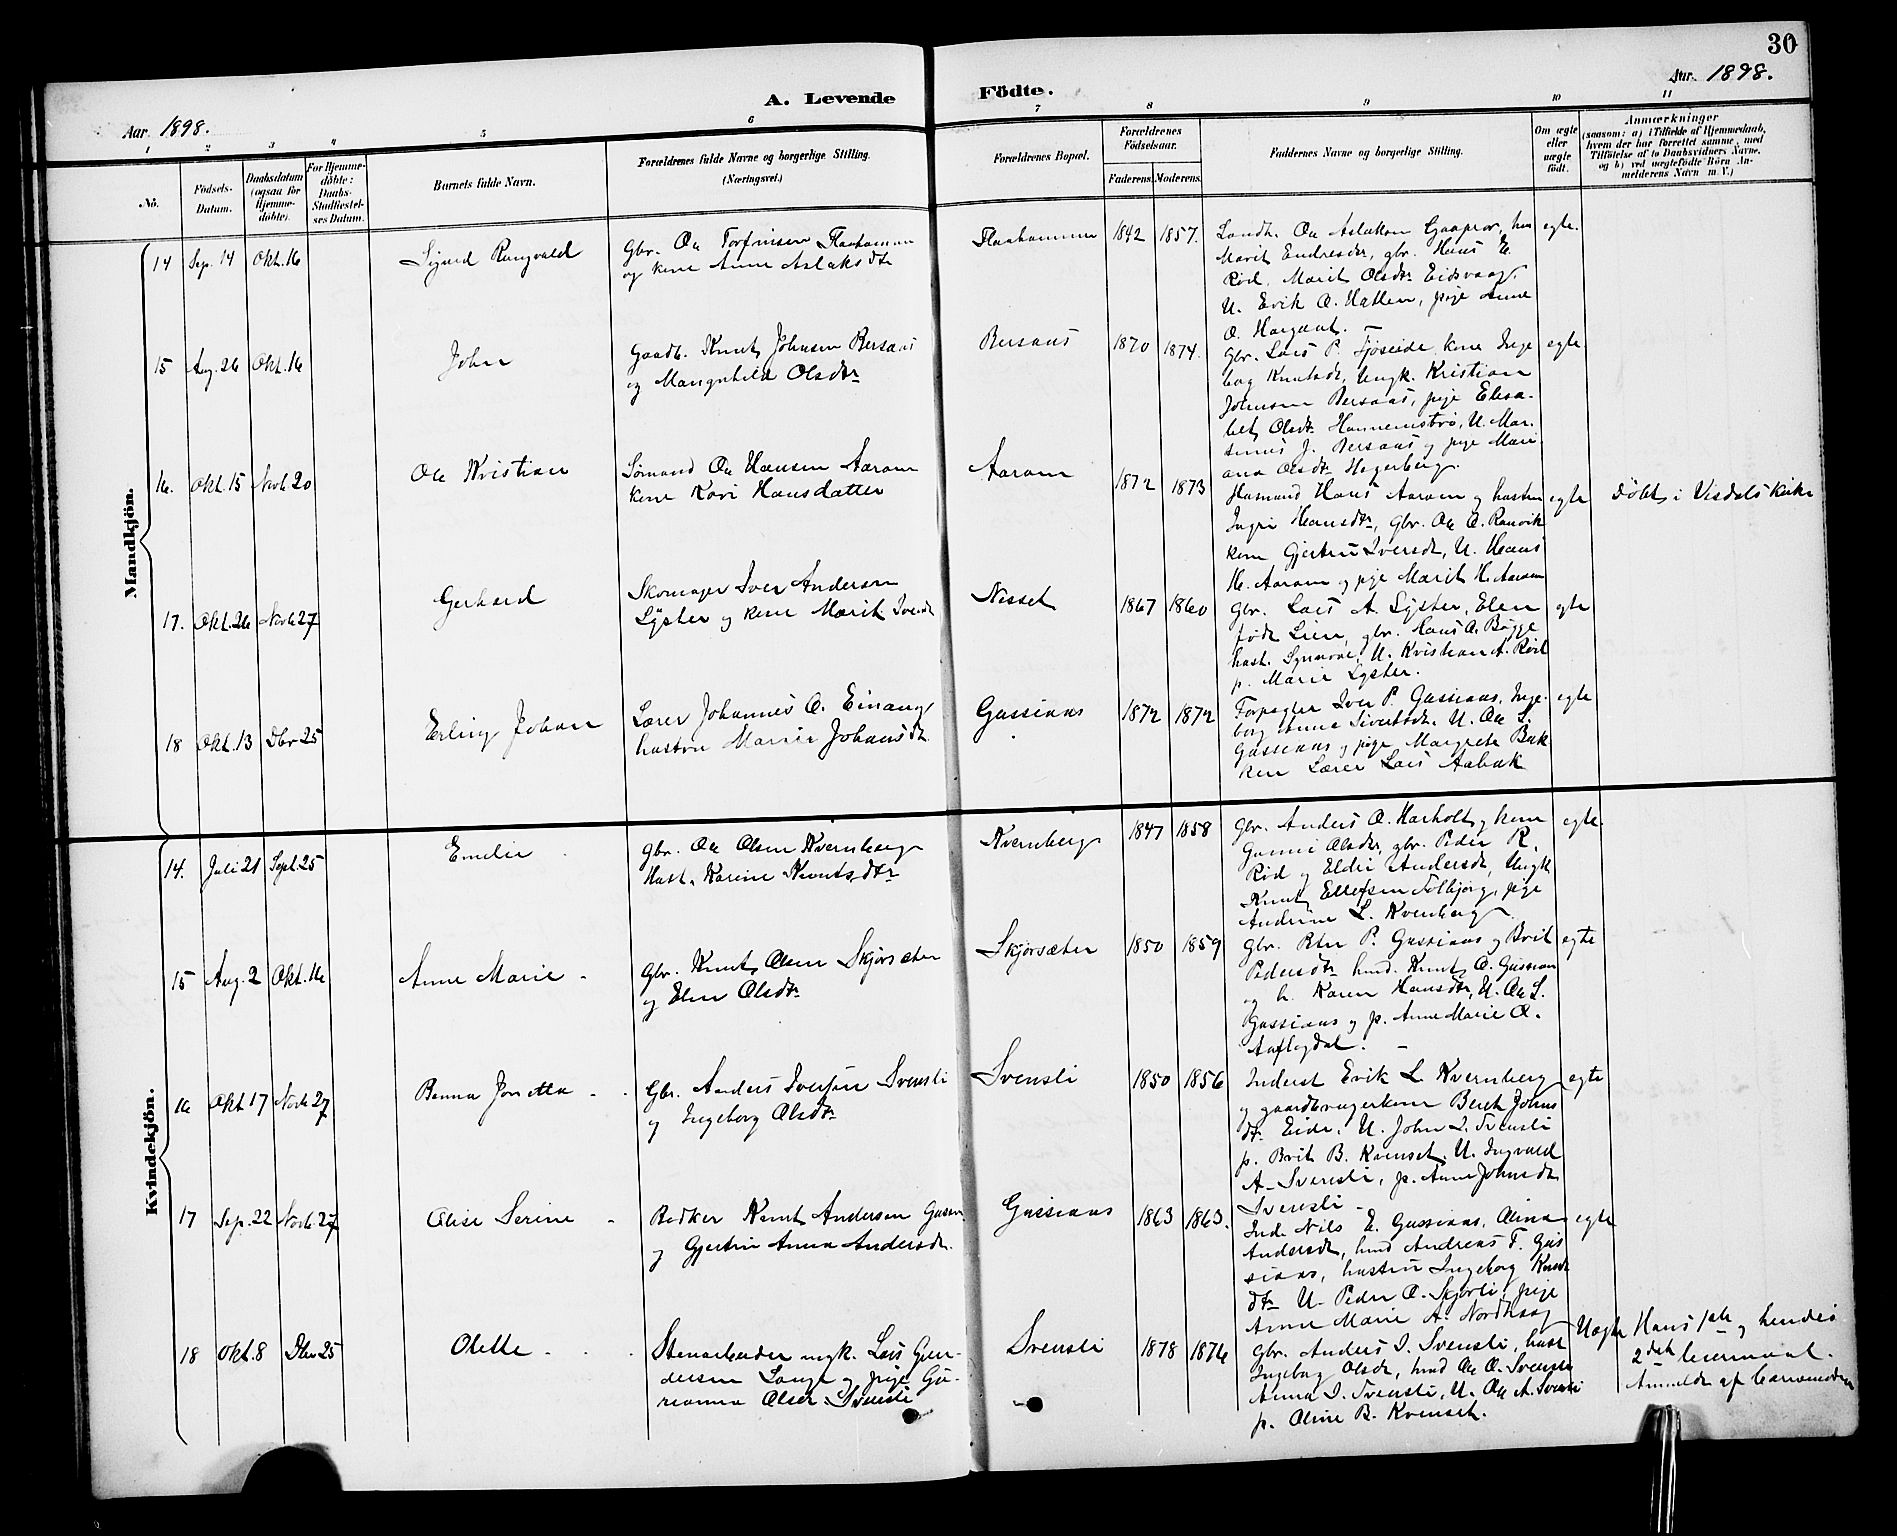 30
Aar 1898.
A. Levende Födte.
Aar. 1898.
1 2 3 4 5 6 7 8 9 10 11
No.
Födsels-Datum.
Daabsdatum (ogsaa for Hjemmedøbte).
For Hjemmedøbte: Daabs-Stadfæstelses Datum.
Barnets fulde Navn.
Forældrenes fulde Navne og borgerlige Stilling.
(Næringsvei.)
Forældrenes Bopæl.
Forældrenes Födselsaar.
Faderens. Moderens.
Faddernes Navne og borgerlige Stilling.
Om ægte eller uægte født.
Anmærkninger
(saasom: a) i Tilfælde af Hjemmedaab,
hvem der har forrettet samme, med
Tilföielse af to Daabsvidners Navne,
og b) ved uægtefødte Börn Anmelderens Navn m. V.)
Mandkjön.
14 Sep. 14 Okt. 16 Sigurd Rangvald
Gbr. Ole Torfinsen Flaahammer
og kone Anne Aslaksdtr
Flaahammer 1842 1857.
Landh. Ole Aslaksen Gaaprør, hu
Marit Endresdtr, gbr. Hans E.
Rød, Marit Olsdtr Eidsvaag,
U. Erik O. Hatlen, pige Anne
O. Hargaut.
egte.
15 Aug. 26 Okt. 16 John
Gaardb. Knut Johnsen Bersaas
og Mangnhild Olsdtr
Bersaas 1870 1874.
Gbr. Lars P. Tjøseide kone Inge
borg Knutsdt, Ungk. Kristian
Johnsen Bersaas, pige Elisa-
bet Olsdtr Hammervstrø, U. Mar-
tinus J. Bersaas og pige Mari
ana Olsdtr Hegerberg.
egte
16. Okt. 15 Novb 20 Ole Kristian
Sømand Ole Hansen Aaram
kone Kari Hansdatter
Aaram 1872 1873
Husmand Hans Aaram og hustru
Ingri Hansdtr, gbr. Ole O. Ranvik
kone Gjertru Iversdt, U. Hans
H. Aaram og pige Marit H. Aaram
egte
Døbt i Visdals kirke
17. Okt. 26 Novb 27 Gerhard
Skomager Iver Andersen
Lyster og kone Marit Iversdt
Nesset 1867 1860
Gbr. Lars A. Lyster, Elen
født Lien, gbr. Hans A. Bugge
hust. Synnøve, U. Kristian A. Rød
p. Marie Lyster.
egte
18 Okt. 13 Dbr 25 Erling Johan
Lærer Johannes O. Einang
hustru Marie Johansdt.
Gussiaas 1872 1872
Forpagter Iver P. Gussiaas, Inge-
borg Anna Sivertsdt. U. Ole L.
Gussiaas og pige Margrete Bak
ken Lærer Lars Aabak
egte
Kvindekjön.
14. Juli 21 Sept. 25 Emelie
Gbr. Ole Olsen Kvernberg
Hust. Karine Knutsdtr
Kvernberg 1847 1858
Gbr. Anders O. Harholt og kone
Gunni Olsdtr, gbr. Peder R.
Rød og Eldri Andersdt, Ungk
Knut Ellefsen Tolbjørg, pige
Andrine L. Kvernberg
egte.
15 Aug. 2 Okt. 16 Anne Marie
Gbr. Knut Olsen Skjørsæter
og Elen Olsdtr
Skjørsæter 1850 1859
Gbr. Peter P. Gussiaas og Brit
Pedersdtr husd. Knut O. Gussiaas
og h. Karen Hansdtr, U. Ole L.
Gussiaas og p. Anne Marie O.
Aaflogdal.
egte
16 Okt 17 Novb 27 Benna Jonetta
Gbr. Anders Iversen Svensli
og Ingeborg Olsdtr
Svensli 1850 1856
Inderst Erik L. Kvernberg
og gaardbrugerkone Beret Johns
dtr Eide. U. John I. Svensli
p. Brit B. Kvenset, U. Ingvald
A. Svensli, p. Anne Johnsdt
Svensli
egte
17 Sep. 22 Novb 27 Olise Serine
Bødker Knut Andersen Gussi
og Gjertru Anna Andersdt.
Gussiaas 1863 1863.
Ind. Nils E. Gussiaas, Olina
Andersdt, husd Andreas T. Gus
siaas, hustru Ingeborg Knuts
dtr U. Peder O. Skjørli, pige
Anne Marie A. Nordhaug
egte
18 Okt. 8 Dbr 25 Olette
Stenarbeider ungk. Lars Gun-
dersen Lange og pige Gu-
rianna Olsdtr Svensli
Svensli 1878 1876
Gbr. Anders I. Svensli, hust
Ingeborg Olsdtr, husd Ole O. Svensli
Anna I. Svensli, U. Ole A. Svensli
p. Oline B. Kvenset.
Uægte
Hans 1ste og hendes
2det leiermaal.
Anmeldt af barnemoderen